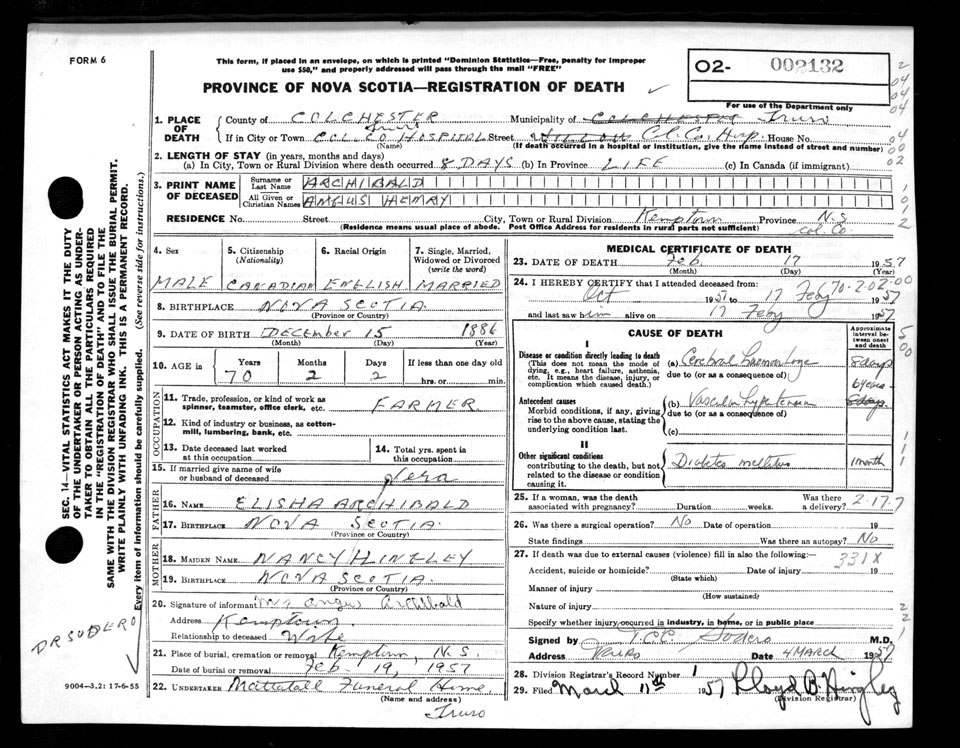 FORM 6
This form, if placed in an envelope, on which is printed "Dominion Statistics—Free, penalty for improper
use $50," and properly addressed will pass through the mail "FREE"
O2- 002132
For use of the Department only
PROVINCE OF NOVA SCOTIA—REGISTRATION OF DEATH
1. PLACE OF DEATH
County of COLCHESTER Municipality of COLCHESTER Truro
If in City or Town COL. CO HOSPITAL Street Col. Co. Hosp. House No.
Truro
(Name) (If death occurred in a hospital or institution, give the name instead of street and number)
2. LENGTH OF STAY (in years, months and days)
(a) In City, Town or Rural Division where death occurred 8 DAYS (b) In Province LIFE (c) In Canada (if immigrant)
3. PRINT NAME OF DECEASED
Surname or Last Name ARCHIBALD
All Given or Christian Names ANGUS HENRY
RESIDENCE No. Street City, Town or Rural Division Kemptown Province N.S
(Residence means usual place of abode. Post Office Address for residents in rural parts not sufficient) Col. Co.
4. Sex MALE
5. Citizenship (Nationality) CANADIAN
6. Racial Origin ENGLISH
7. Single, Married, Widowed or Divorced (write the word) MARRIED
8. BIRTHPLACE NOVA SCOTIA.
(Province or Country)
9. DATE OF BIRTH DECEMBER 15 1886
(Month) (Day) (Year)
10. AGE in Years 70 Months 2 Days 2 If less than one day old
hrs. or min.
OCCUPATION
11. Trade, profession, or kind of work as
spinner, teamster, office clerk, etc. FARMER.
12. Kind of industry or business, as cotton-
mill, lumbering, bank, etc.
13. Date deceased last worked
at this occupation
14. Total yrs. spent in
this occupation
15. If married give name of wife
or husband of deceased Vera
FATHER
16. NAME ELISHA ARCHIBALD
17. BIRTHPLACE NOVA SCOTIA.
(Province or Country)
MOTHER
18. MAIDEN NAME NANCY HINGLEY
19. BIRTHPLACE NOVA SCOTIA.
(Province or Country)
20. Signature of informant Mrs Angus Archibald
Address Kemptown.
Relationship to deceased Wife
21. Place of burial, cremation or removal Kemptown, N.S.
Date of burial or removal Feb 19, 1957
22. UNDERTAKER Mattatall Funeral Home,
(Name and address)
Truro
MEDICAL CERTIFICATE OF DEATH
23. DATE OF DEATH Feb. 17 1957
(Month) (Day) (Year)
24. I HEREBY CERTIFY that I attended deceased from:
70-2.02.00
Oct 1957 to 17 Feby 1957
and last saw him alive on 17 Feby 1957
CAUSE OF DEATH
Approximate interval between onset and death
I
Disease or condition directly leading to death
(This does not mean the mode of
dying, e.g., heart failure, asthenia,
etc. It means the disease, injury, or
complication which caused death.)
(a) Cerebral haemorrhage 8 days
due to (or as a consequence of):
Antecedent causes
Morbid conditions, if any, giving
rise to the above cause, stating the
underlying condition last.
6 years
(b) Vascular hypertension 8 days
due to (or as a consequence of):
(c)
II
Other significant conditions
contributing to the death, but not
related to the disease or condition
causing it.
Diabetes mellitus 1 month
25. If a woman, was the death
associated with pregnancy? Duration weeks. Was there
a delivery? 2.17.7
26. Was there a surgical operation? No Date of operation 19
State findings Was there an autopsy? No
27. If death was due to external causes (violence) fill in also the following:—
331X
Accident, suicide or homicide? Date of injury 19
(State which)
Manner of injury
(How sustained)
Nature of injury
Specify whether injury occurred in industry, in home, or in public place
Signed by T.C.C. Sodero M.D.
Address Truro Date 4 MARCH 1957
28. Division Registrar's Record Number 1
29. Filed March 11th 1957 Lloyd B. Hingley
(Division Registrar)
SEC. 14—VITAL STATISTICS ACT MAKES IT THE DUTY
OF THE UNDERTAKER OR PERSON ACTING AS UNDER-
TAKER TO OBTAIN ALL THE PARTICULARS REQUIRED
IN THE "REGISTRATION OF DEATH" AND TO FILE THE
SAME WITH THE DIVISION REGISTRAR WHO SHALL ISSUE THE BURIAL PERMIT.
WRITE PLAINLY WITH UNFADING INK. THIS IS A PERMANENT RECORD.
Every item of information should be carefully supplied. (See reverse side for instructions.)
DR SODERO
9004—3.2: 17-6-55
2
04
04
04
04
00
02
1
0
1
2
5
00
1
1
1
2
2
1